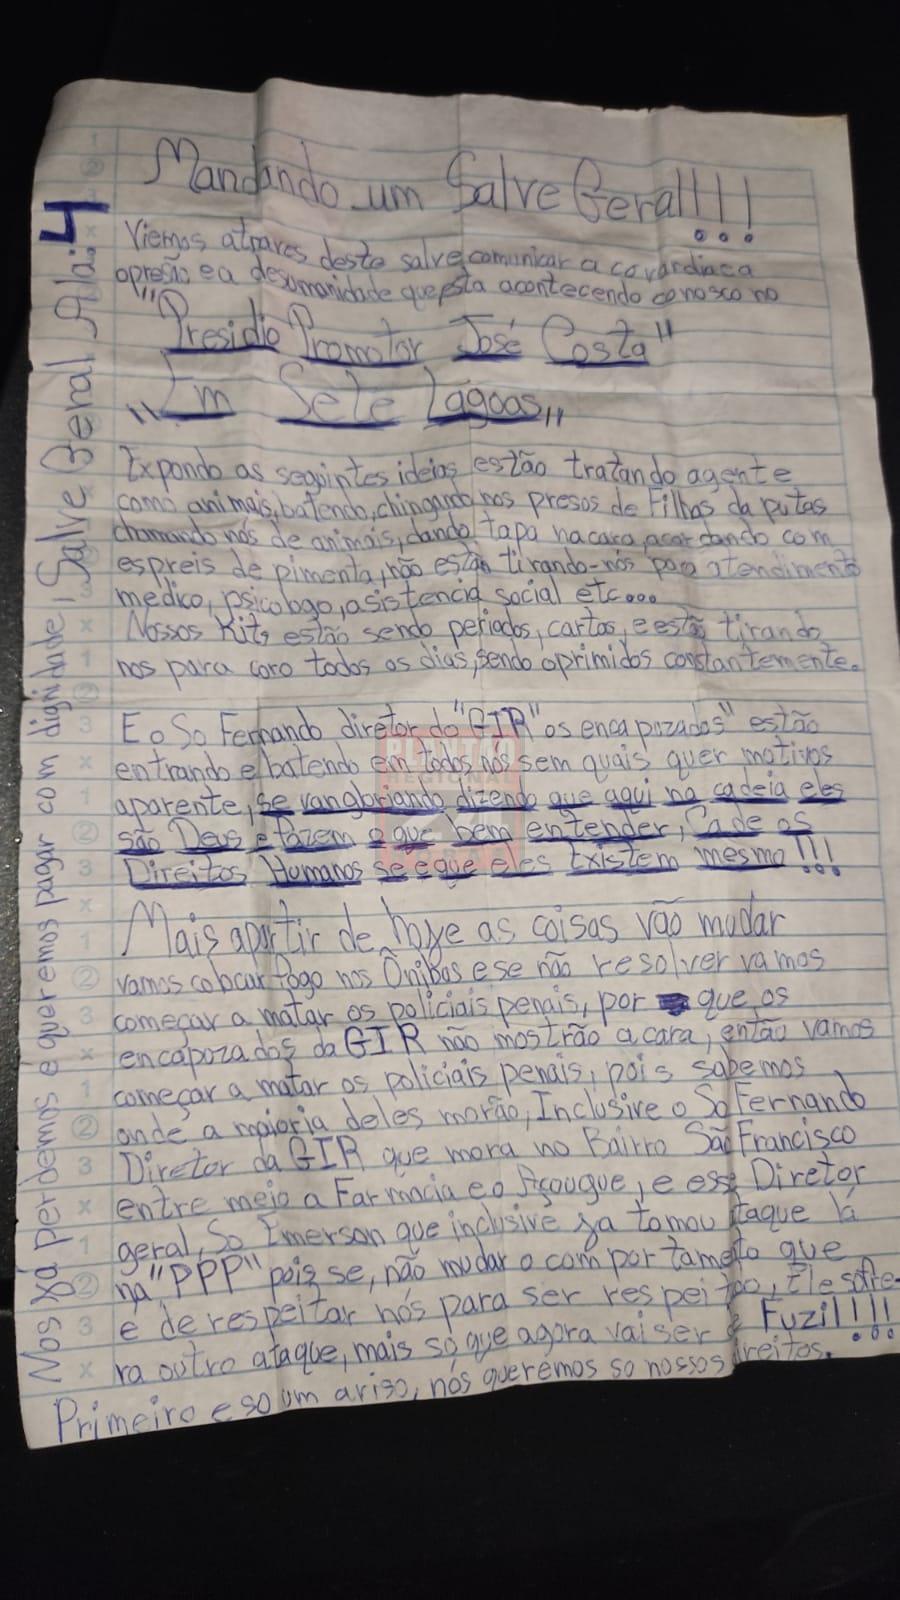 Mandando um Salve Geral!!!
Viemos atravres deste salve comunicar a covardiaca
opresão e a desumanidade que esta acontecendo conosco no
"Presidio Promotor José Costa"
"Em Sete Lagoas"
Expondo as seguintes ideias estão tratando agente
como animais, batendo, chingando nos presos de Filhas da putas
chamando nós de animais, dando tapa na cara, acordando com
espreis de pimenta, não estão tirando-nós para atendimento
medico, psicologo, asistencia social etc...
Nossos Kits estão sendo periados, cartas, e estão tirando
nos para coro todos os dias, sendo oprimidos constantemente.
E o So Fernando diretor do "GIR" os encapuzados" estão
entrando e batendo em todos nós sem quais quer motivos
aparente, se vangloriando dizendo que aqui na cadeia eles
são Deus e fazem o que bem entender, Cade os
Direitos Humanos se e que eles Existem mesmo!!!
Mais apartir de hoye as coisas vão mudar
vamos colocar fogo nos Ônibus e se não resolver vamos
começar a matar os policiais penais, por que os
encapozados da GIR não mostrão a cara, então vamos
começar a matar os policiais penais, pois sabemos
onde a maioria deles morão, Inclusive o So Fernando
Diretor da GIR que mora no Bairro São Francisco
entre meio a Farmacia e o Açougue, e esse Diretor
geral, So Emerson que inclusive ja tomou ataque lá
na "PPP" pois se, não mudar o comportameto que
e de respeitar nós para ser respeitado, Ele sofre-
ra outro ataque, mais só que agora vai ser Fuzil!!!!
Primeiro e so um aviso, nós queremos so nossos direitos.
Nos já perdemos é queremos pagar com dignidade, Salve Geral Ala: 4
PLANTÃO
REGIONAL